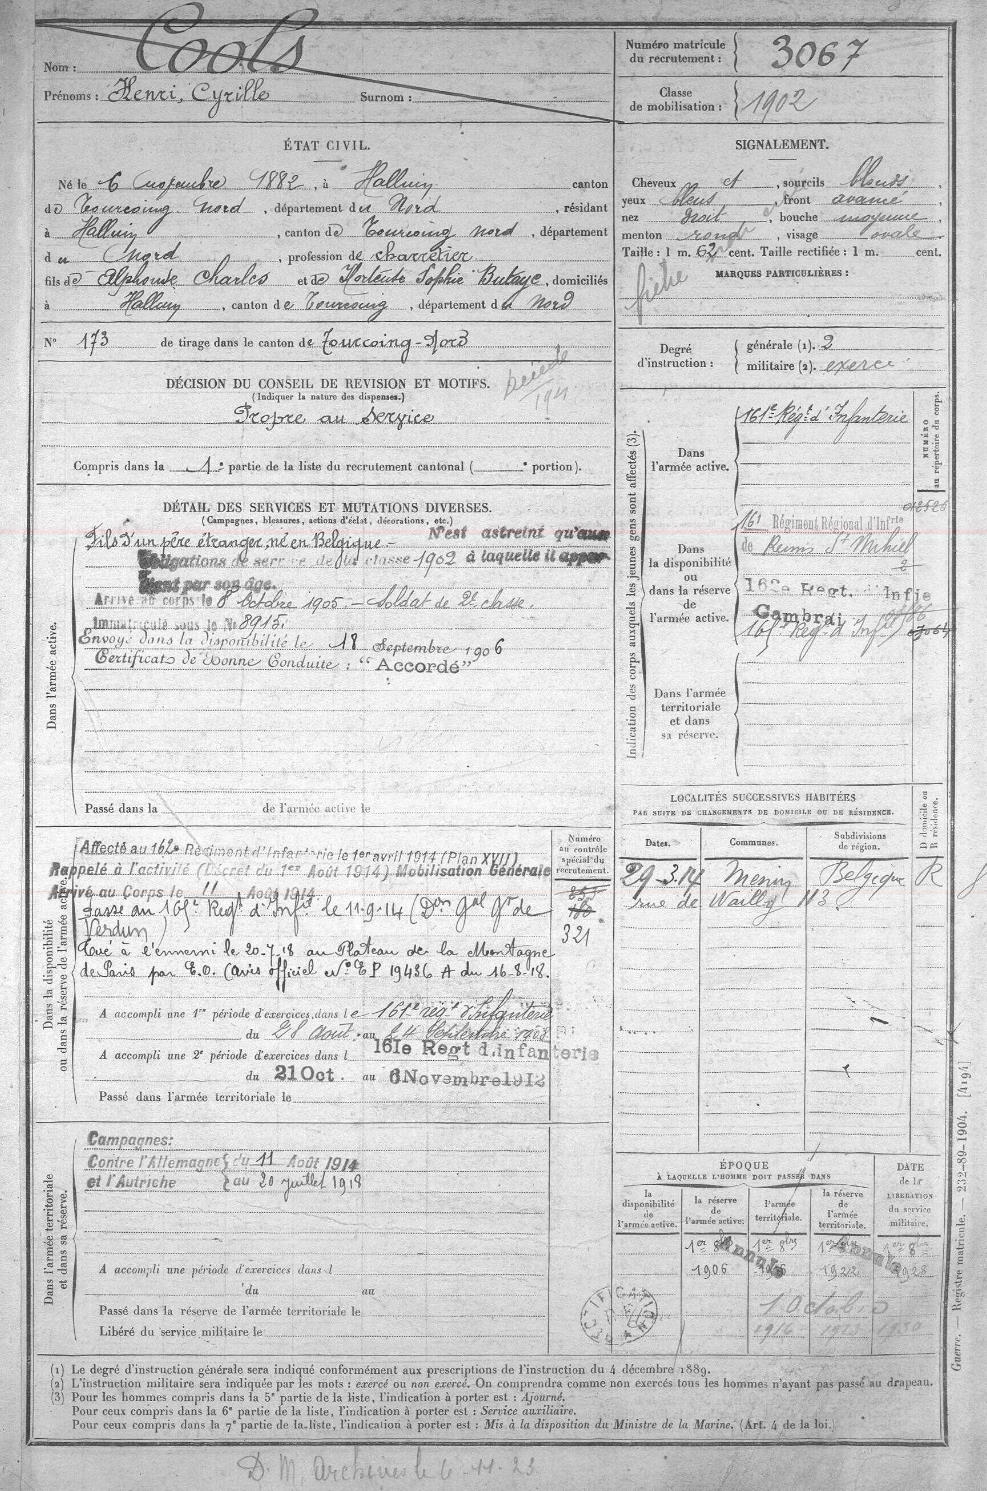 Nom : Cools
Prénoms : Henri, Cyrille Surnom :
Numéro matricule du recrutement : 3067
Classe de mobilisation : 1902
ÉTAT CIVIL.
Né le 6 novembre 1882, à Halluin canton
de Tourcoing Nord, département du Nord, résidant
à Halluin, canton de Tourcoing nord, département
du Nord, profession de charretier
fils de Alphonse Charles et de Hortense Sophie Butaye, domiciliés
à Halluin, canton de Tourcoing, département du Nord
N° 173 de tirage dans le canton de Tourcoing-Nord
DÉCISION DU CONSEIL DE REVISION ET MOTIFS.
(Indiquer la nature des dispenses.)
Décédé
Propre au service
Compris dans la 1e partie de la liste du recrutement cantonal ( e portion).
SIGNALEMENT.
Cheveux et, sourcils blonds,
yeux bleus, front avancé
nez droit, bouche moyenne
menton rond, visage ovale
Taille : 1 m. 62 cent. Taille rectifiée : 1 m. cent.
MARQUES PARTICULIÈRES :
fiche
Degré d'instruction :
générale (1). 2
militaire (2). exercé
DÉTAIL DES SERVICES ET MUTATIONS DIVERSES.
(Campagnes, blessures, actions d'éclat, décorations, etc.)
Dans l'armée active.
Fils d'un père étranger, né en Belgique - N'est astreint qu'aux
Obligations de service de la classe 1902 à laquelle il appar-
tient par son âge.
Arrivé au corps le 8 Octobre 1905. - Soldat de 2e classe.
Immatriculé sous le N° 8915.
Envoyé dans la disponibilité le 18 Septembre 1906
Certificat de Bonne Conduite : "Accordé"
Passé dans la de l'armée active le
Indication des corps auxquels les jeunes gens sont affectés (3).
NUMÉRO au répertoire du corps.
Dans l'armée active.
161e Régt d'Infanterie
Dans la disponibilité ou dans la réserve de l'armée active.
161 Régiment Régional d'Infrie
de Reims St Mihiel
162e Regt. d'Infie
Cambrai
165e Régt d'Inf
Dans l'armée territoriale et dans sa réserve.
Dans la disponibilité ou dans la réserve de l'armée active.
Numéro au contrôle spécial du recrutement.
321
Affecté au 162e Régiment d'Infanterie le 1er avril 1914 (Plan XVII)
Rappelé à l'activité (Décret du 1er Août 1914) Mobilisation Générale
Arrivé au Corps le 11 Août 1914
Passé au 165e Régt d'Infie le 11-9-14 (Don Gal Gr de
Verdun)
Tué à l'ennemi le 20-7-18 au Plateau de la Montagne
de Paris par E.O. (avis officiel N° EP 19436 A du 16-8-18.
A accompli une 1re période d'exercices dans le 161e régt d'Infanterie
du 28 août au 24 Septembre 1908
A accompli une 2e période d'exercices dans l 161e Regt d.Infanterie
du 21 Oct. au 6 Novembre 1912
Passé dans l'armée territoriale le
LOCALITÉS SUCCESSIVES HABITÉES
PAR SUITE DE CHANGEMENTS DE DOMICILE OU DE RÉSIDENCE.
Dates. Communes. Subdivisions de région. D domicile ou R résidence.
29-3-14 Menin Belgique R
rue de Wailly 113.
Dans l'armée territoriale et dans sa réserve.
Campagnes:
Contre l'Allemagne } du 11 Août 1914
et l'Autriche } au 20 juillet 1918
A accompli une période d'exercices dans l
du au
Passé dans la réserve de l'armée territoriale le
Libéré du service militaire le
ÉPOQUE
À LAQUELLE L'HOMME DOIT PASSER DANS
la disponibilité de l'armée active.
la réserve de l'armée active.
l'armée territoriale.
la réserve de l'armée territoriale.
DATE de la LIBÉRATION du service militaire.
Annulé Annulé
1906 1922 1928
1 Octobre
1916
RECTIFICATION
(1) Le degré d'instruction générale sera indiqué conformément aux prescriptions de l'instruction du 4 décembre 1889.
(2) L'instruction militaire sera indiquée par les mots : exercé ou non exercé. On comprendra comme non exercés tous les hommes n'ayant pas passé au drapeau.
(3) Pour les hommes compris dans la 5e partie de la liste, l'indication à porter est : Ajourné.
Pour ceux compris dans la 6e partie de la liste, l'indication à porter est : Service auxiliaire.
Pour ceux compris dans la 7e partie de la liste, l'indication à porter est : Mis à la disposition du Ministre de la Marine. (Art. 4 de la loi.)
Guerre. — Registre matricule. — 232-89-1904. [4194]
D. M. archives le 6-11-23